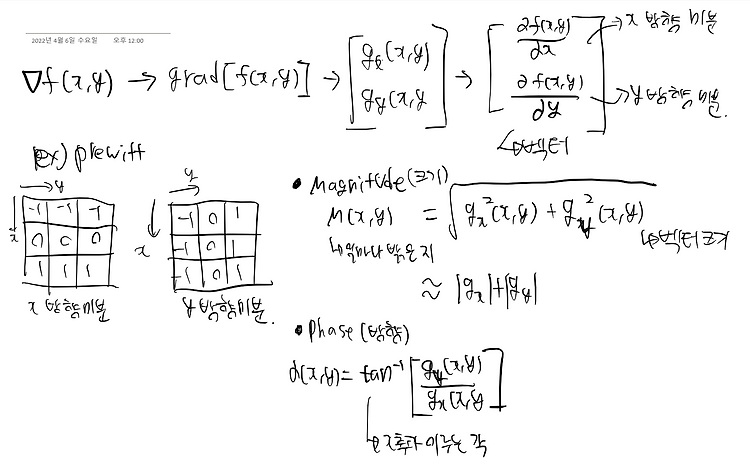 2022년 4월 6일 수요일 오후 12:00
∇f(x,y) → grad[f(x,y)] → [gx(x,y) gy(x,y] → [∂f(x,y)/∂x ∂f(x,y)/∂y]
→ x 방향 미분
→ y 방향 미분.
↳ 벡터
ex) prewitt
→ y
↓ x
-1 -1 -1
0 0 0
1 1 1
x 방향 미분
y →
↓ x
-1 0 1
-1 0 1
-1 0 1
y 방향 미분.
• Magnitude (크기)
M(x,y) = √gx²(x,y) + gy²(x,y)
↳ 벡터 크기
↳ 얼마나 밝은지
≈ |gx|+|gy|
• Phase (방향)
α(x,y) = tan⁻¹ [gy(x,y) / gx(x,y]
축과 이루는 각